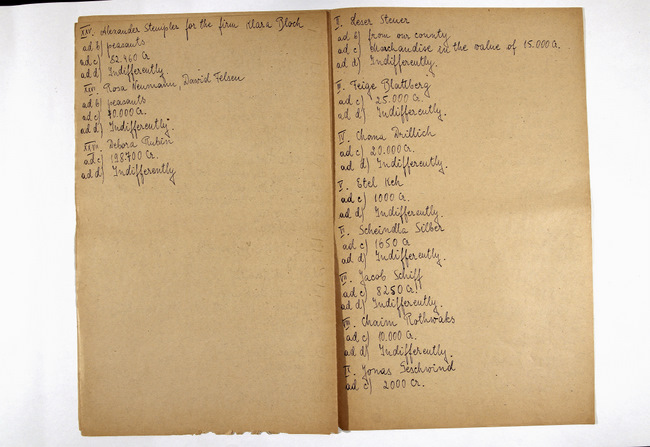 XXV. Alexander Stempler for the firm Klara Bloch
ad b) peasants
ad c) 32.460 Cr.
ad d) Indifferently.
XXVI. Rosa Neumann, Dawid Felsen
ad b) peasants
ad c) 70.000 Cr.
ad d) Indifferently.
XXVII. Debora Rubin
ad c) 198.700 Cr.
ad d) Indifferently
II. Leser Steuer
ad b) from our county
ad c) Merchandise in the value of 15.000 Cr.
ad d) Indifferently.
III. Feige Blattberg
ad c) 25.000 Cr.
ad d) Indifferently.
IV. Chama Drillich
ad c) 20.000 Cr.
ad d) Indifferently.
V. Etel Keh
ad c) 1000 Cr.
ad d) Indifferently.
VI. Scheindla Silber
ad c) 1650 Cr
ad d) Indifferently.
VII. Jacob Schiff
ad c) 8250 Cr.
ad d) Indifferently.
VIII. Chaim Rothwaks
ad c) 10.000 Cr.
ad d) Indifferently.
IX. Jonas Geschwind
ad c) 2000 Cr.